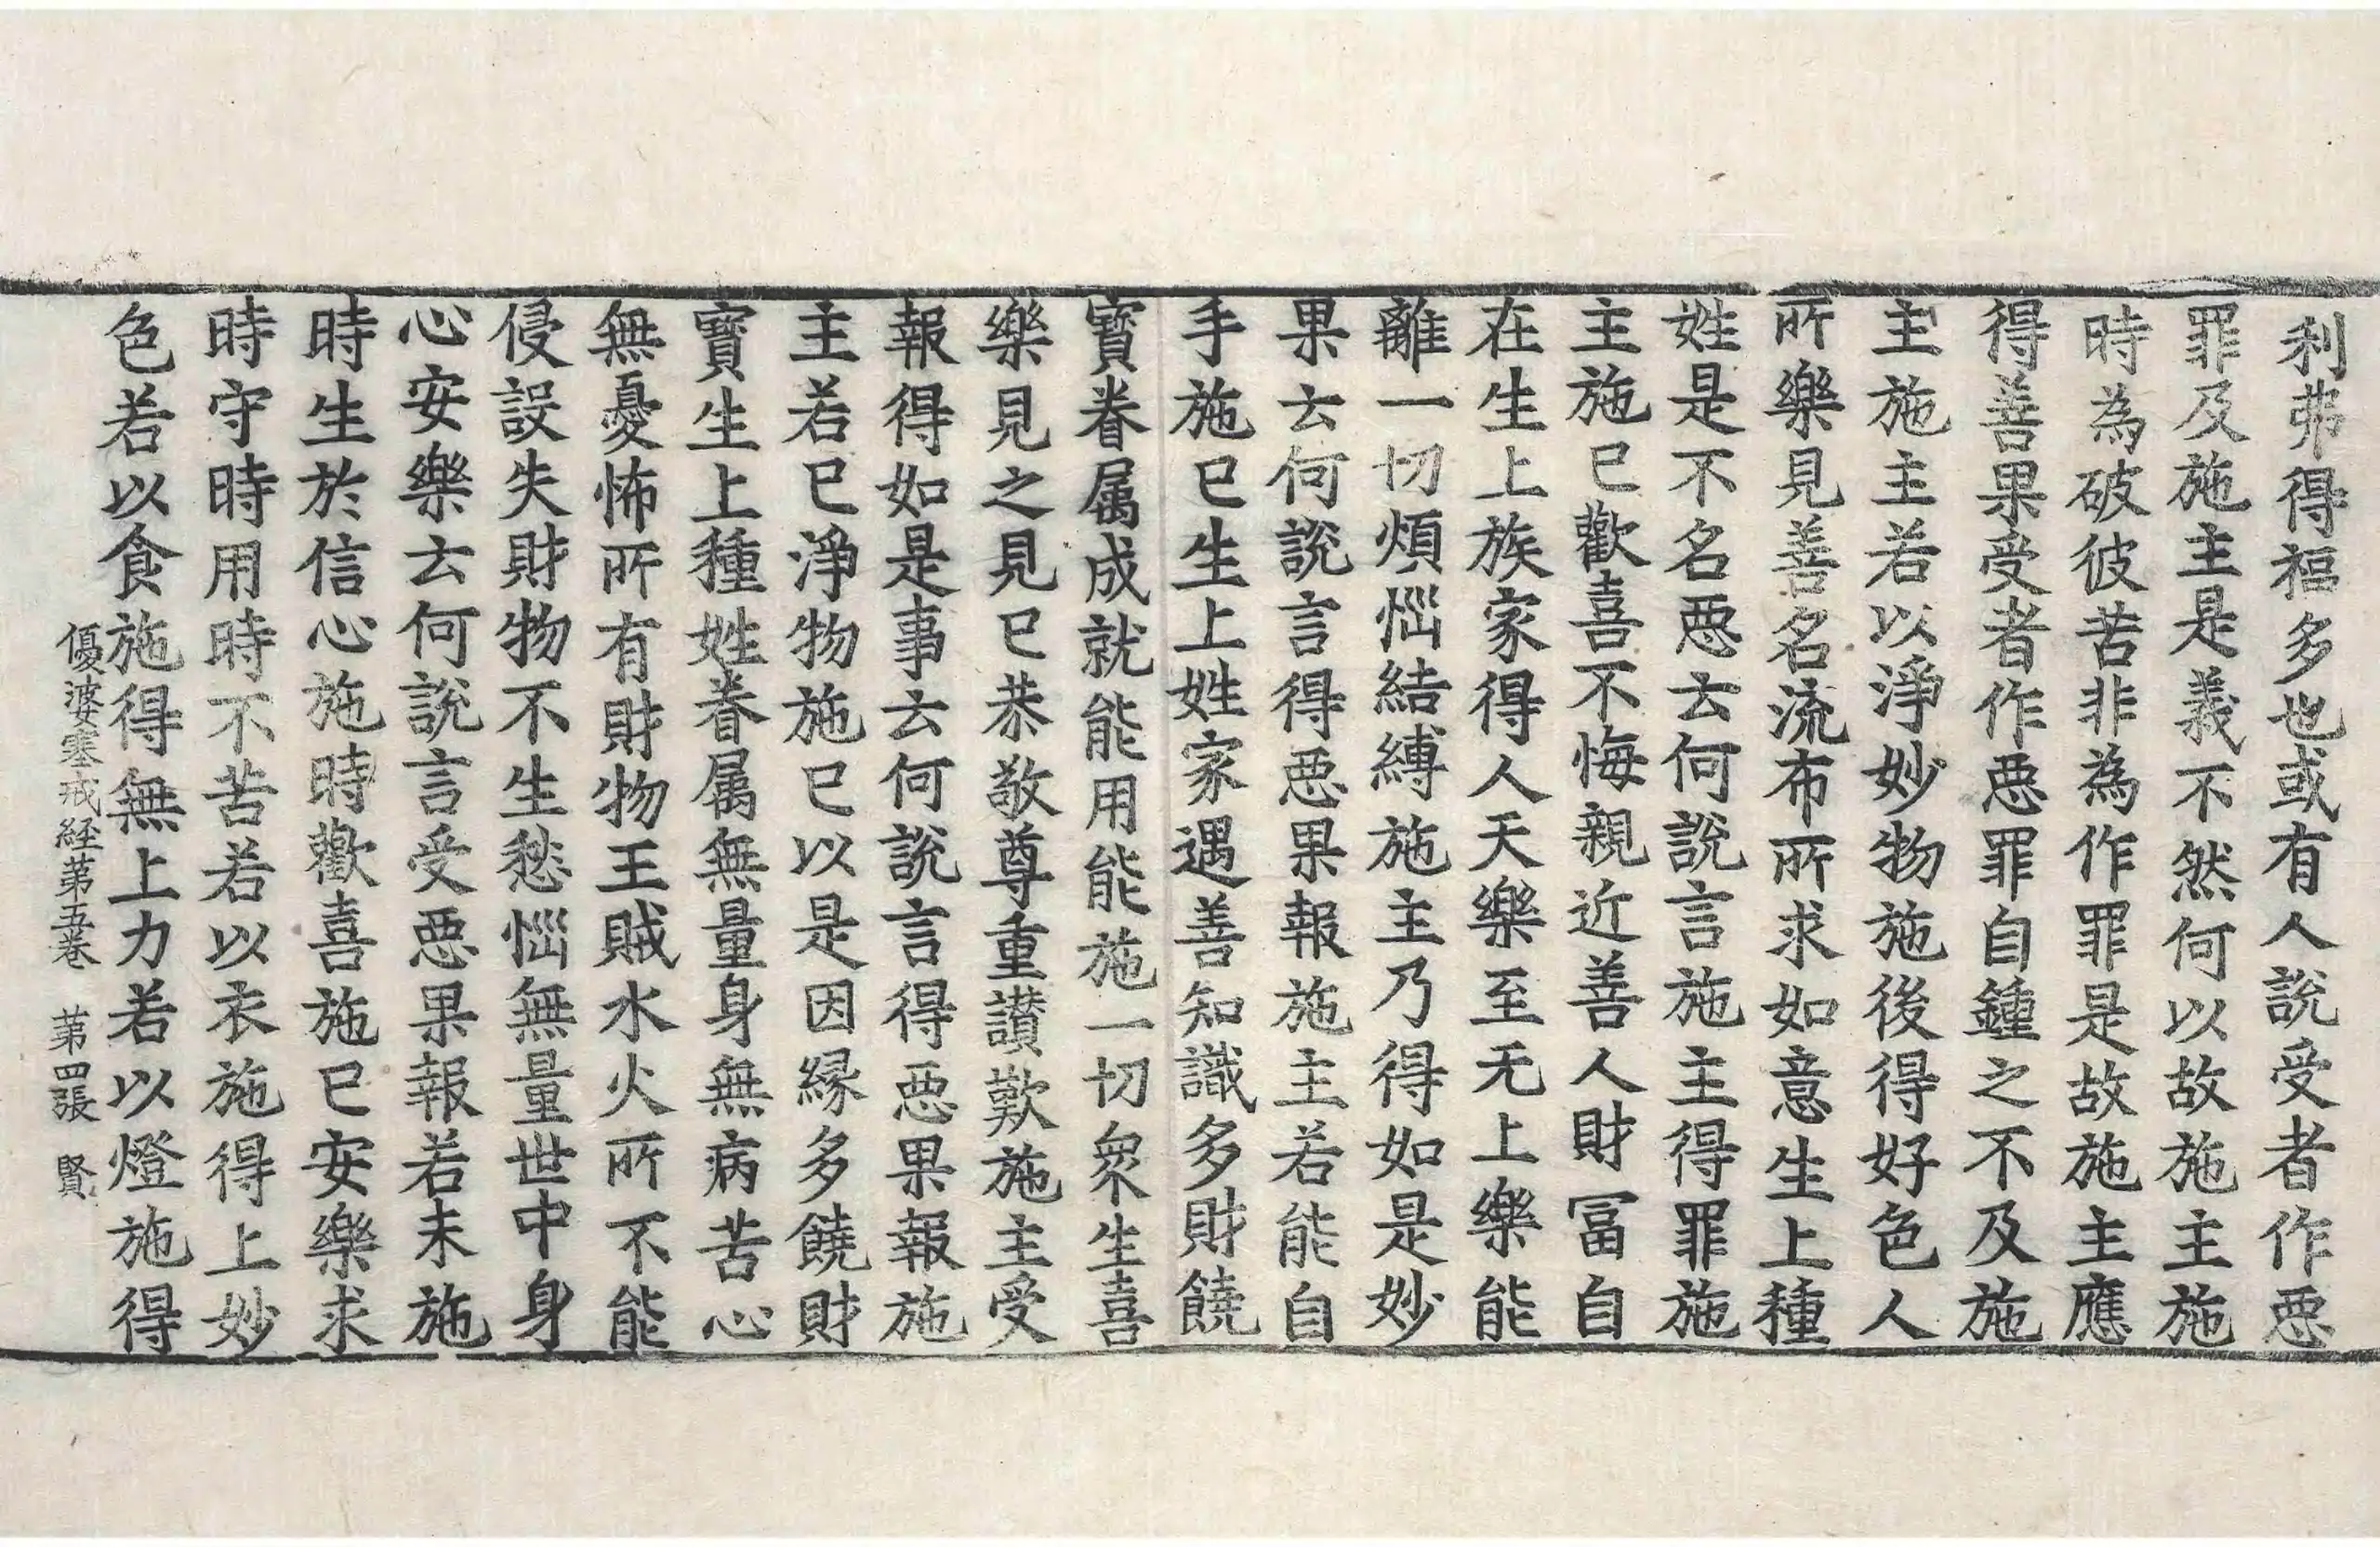 利弗得福多也或有人說受者作悪
罪及施主是義不然何以故施主施
時為破彼苦非為作罪是故施主應
得善果受者作悪罪自鍾之不及施
主施主若以淨妙物施後得好色人
所樂見善名流布所求如意生上種
姓是不名悪云何說言施主得罪施
主施已歡喜不悔親近善人財冨自
在生上族家得人天樂至无上樂能
離一切煩惱結縛施主乃得如是妙
果云何說言得悪果報施主若能自
手施已生上姓家遇善知識多財饒
寳眷属成就能用能施一切衆生喜
樂見之見已恭敬尊重讃歎施主受
報得如是事云何說言得悪果報施
主若已淨物施已以是因縁多饒財
寳生上種姓眷属無量身無病苦心
無憂怖所有財物王賊水火所不能
侵設失財物不生愁惱無量世中身
心安樂云何說言受悪果報若未施
時生於信心施時歡喜施已安樂求
時守時用時不苦若以衣施得上妙
色若以食施得無上力若以燈施得
優婆塞戒経第五巻　第四張　賢